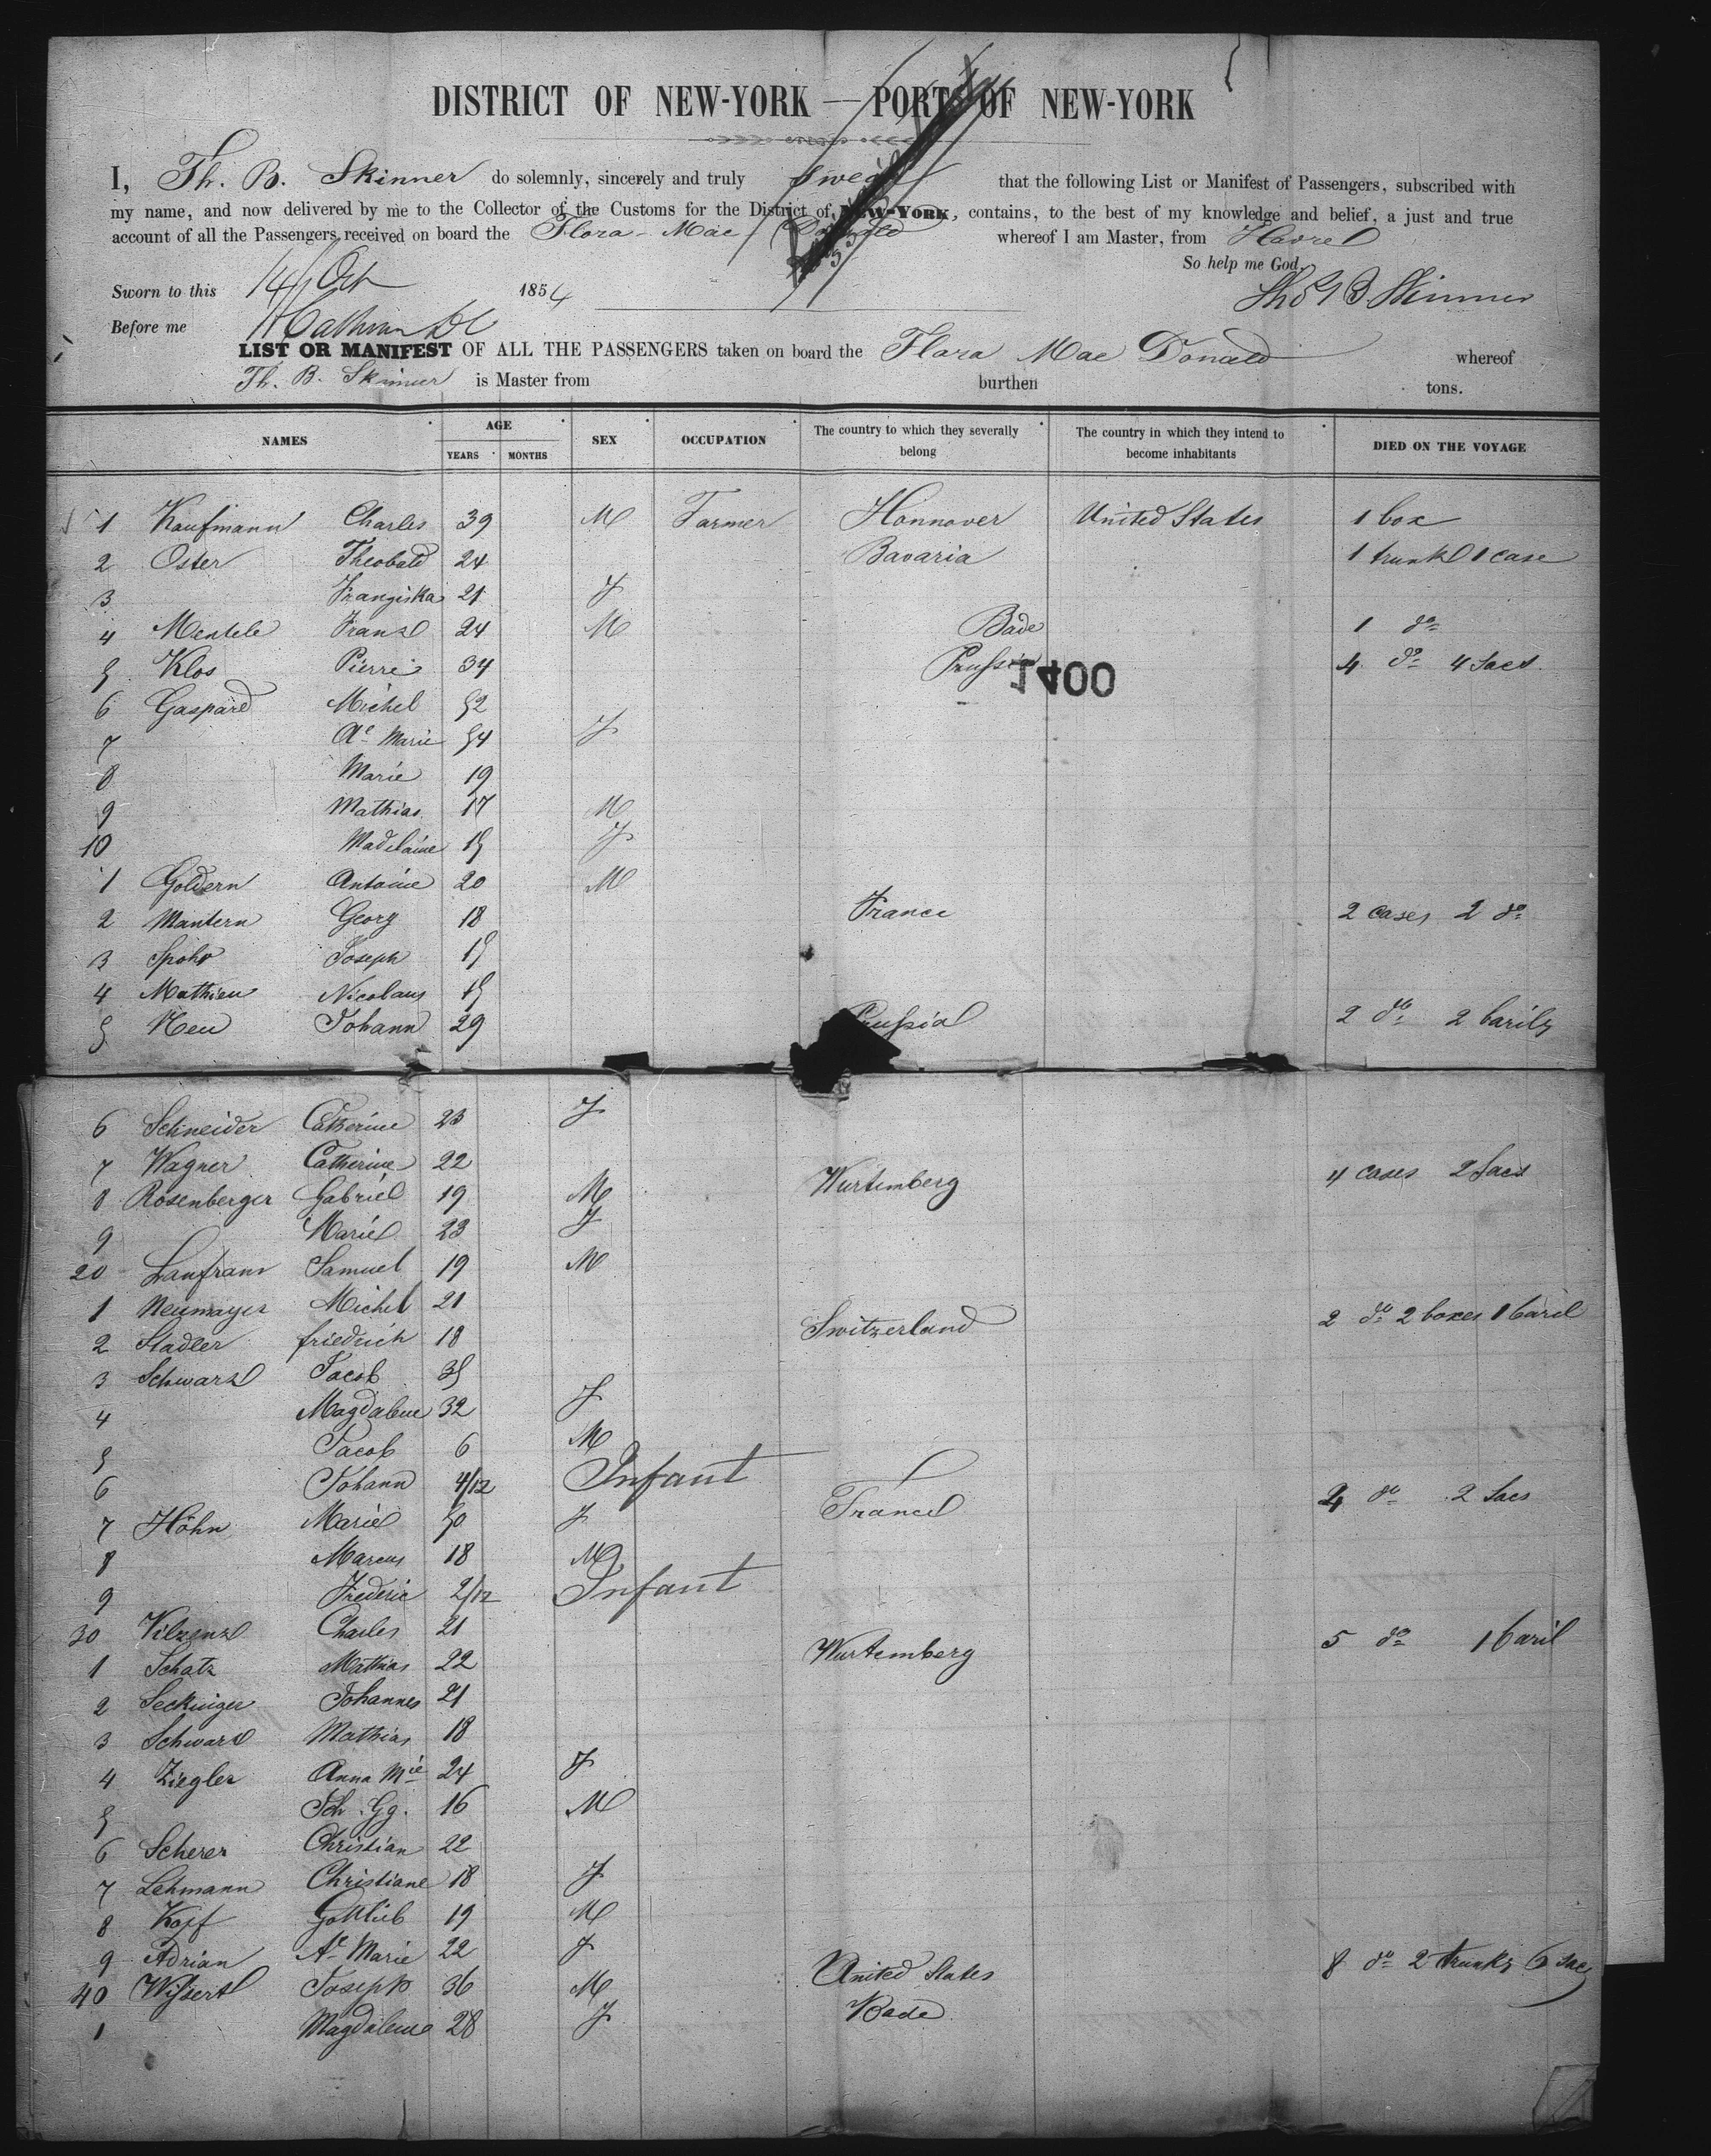 DISTRICT OF NEW-YORK — PORT OF NEW-YORK
I, Th. B. Skinner do solemnly, sincerely and truly swear that the following List or Manifest of Passengers, subscribed with
my name, and now delivered by me to the Collector of the Customs for the District of NEW-YORK, contains, to the best of my knowledge and belief, a just and true
account of all the Passengers received on board the Flora Mac Donald whereof I am Master, from Havre
So help me God.
Sworn to this 14 Oct 1854
Thos B. Skinner
Before me
LIST OR MANIFEST OF ALL THE PASSENGERS taken on board the Flora Mac Donald whereof
Th. B. Skinner is Master from burthen tons.
NAMES AGE YEARS MONTHS SEX OCCUPATION The country to which they severally belong The country in which they intend to become inhabitants DIED ON THE VOYAGE
1 Kaufmann Charles 39 M Farmer Hannover United States 1 box
2 Oster Theobald 24 Bavaria 1 trunk 1 case
3 Franziska 21 F
4 Mentele Franz 24 M Bade 1 do
5 Klos Pierre 34 Prussia 4 do 4 Sacs
1400
6 Gaspard Michel 52
7 Ae Marie 54 F
8 Marie 19
9 Mathias 17 M
10 Madelaine 15 F
1 Goldern Antoine 20 M
2 Mantern Georg 18 France 2 cases 2 do
3 Spohr Joseph 15
4 Mathieu Nicolaus 15
5 Neu Johann 29 Prussia 2 do 2 barils
6 Schneider Catherine 23 F
7 Wagner Catherine 22
8 Rosenberger Gabriel 19 M Wurtemberg 4 cases 2 Sacs
9 Marie 23 F
20 Lanfrann Samuel 19 M
1 Neumayer Michel 21
2 Stadler friedrich 18 Switzerland 2 do 2 boxes 1 baril
3 Schwarz Jacob 35
4 Magdalene 32 F
5 Jacob 6 M
6 Johann 4/12 Infant
7 Höhn Marie 50 F France 4 do 2 Sacs
8 Marcus 18 M
9 Frederic 2/12 Infant
30 Charles 21
1 Schatz Mathias 22 Wurtemberg 5 do 1 baril
2 Seckinger Johannes 21
3 Schwarz Mathias 18
4 Ziegler Anna Mie 24 F
5 Joh. Gg. 16 M
6 Scherer Christian 22
7 Lehmann Christiane 18 F
8 Kopf Gottlieb 19 M
9 Adrian Ae Marie 22 F
40 Wissert Joseph 36 M United States 8 do 2 trunks 6 Sacs
1 Magdalene 28 F Bade